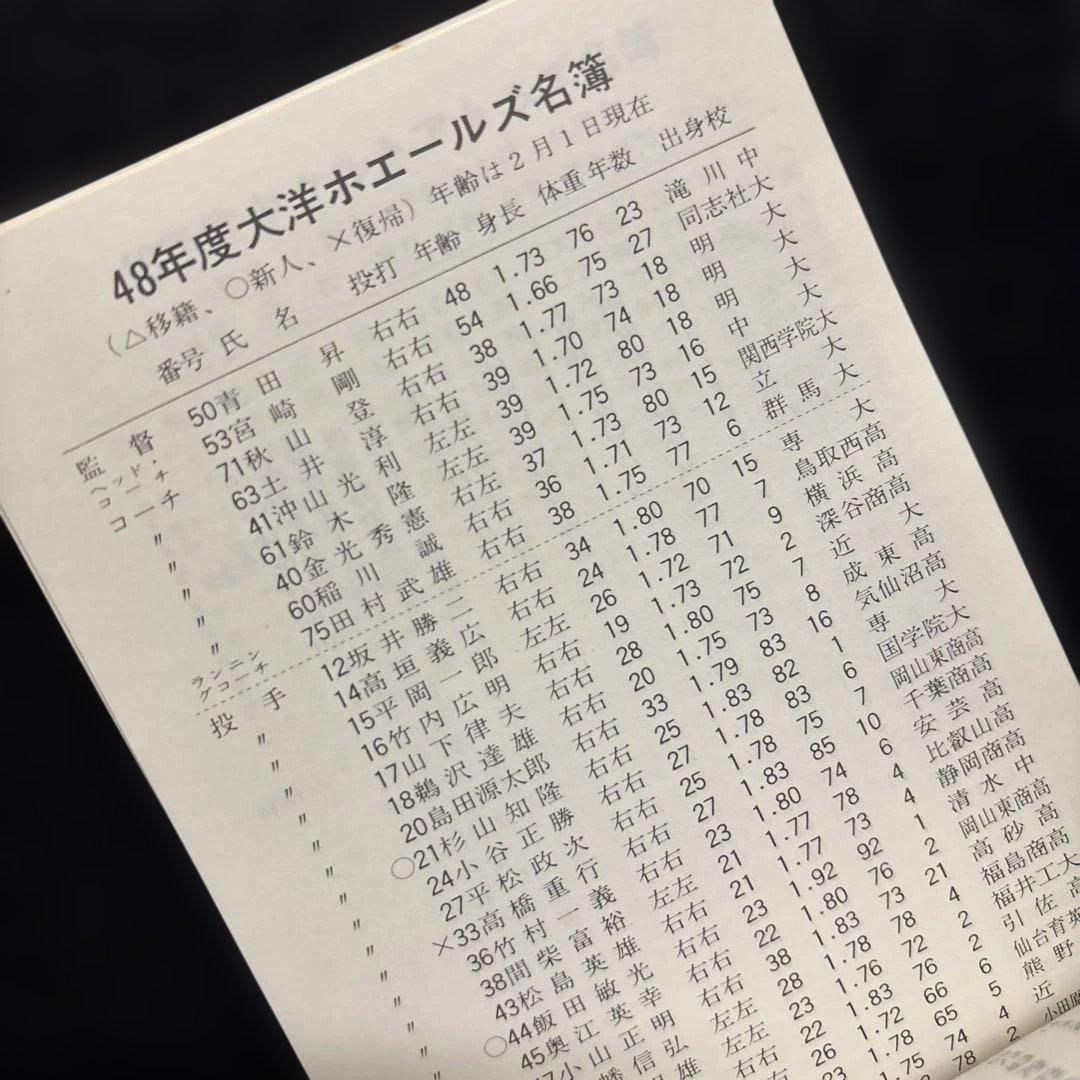 48年度大洋ホエールズ名簿
(△移籍、○新人、×復帰) 年齢は2月1日現在
番号 氏 名 投打 年齢 身長 体重 年数 出身校
監 督 50青田 昇 右右 48 1.73 76 23 滝川中
ヘッド・コーチ 53宮崎 剛 右右 54 1.66 75 27 同志社大
コーチ 71秋山 登 右右 38 1.77 73 18 明大
〃 63土井 淳 右右 39 1.70 74 18 明大
〃 41沖山光利 左左 39 1.72 80 18 大
〃 61鈴木 隆 左左 39 1.75 73 16 中大
〃 40金光秀憲 右左 37 1.73 80 15 関西学院大
〃 60稲川 誠 右右 36 1.71 73 12 立大
ランニングコーチ 75田村武雄 右右 38 1.75 77 6 群馬大
投 手 12坂井勝二 右右 34 1.80 70 15 専大
〃 14高垣義広 右右 24 1.78 77 7 鳥取西高
〃 15平岡一郎 左左 26 1.72 71 9 横浜高
〃 16竹内広明 右右 19 1.73 72 2 深谷商高
〃 17山下律夫 右右 28 1.80 75 7 近大
〃 18鵜沢達雄 右右 20 1.75 73 8 成東高
〃 20島田源太郎 右右 33 1.79 83 16 気仙沼高
〃 ○21杉山知隆 右右 25 1.83 82 1 専大
〃 24小谷正勝 右右 27 1.78 83 6 国学院大
〃 27平松政次 右右 25 1.78 75 7 岡山東商高
〃 ×33高橋重行 右右 27 1.83 85 10 千葉商高
〃 36竹村一義 右右 23 1.80 74 6 安芸高
〃 38間柴富裕 左左 21 1.77 78 4 比叡山高
〃 43松島英雄 右右 21 1.77 73 4 静岡商高
〃 ○44飯田敏光 右右 23 1.92 92 1 清水中
〃 45奥江英幸 右右 22 1.80 76 2 岡山東商高
小山正明 右右 38 1.83 73 21 高砂高
幡信弘 左左 28 1.78 78 4 福島商高
雄 左左 23 1.76 72 2 福井工大
右右 22 1.83 76 2 引佐高
26 1.72 66 6 仙台育英
23 1.78 65 5 熊野
1.75 74 4 近
78 2 小田原